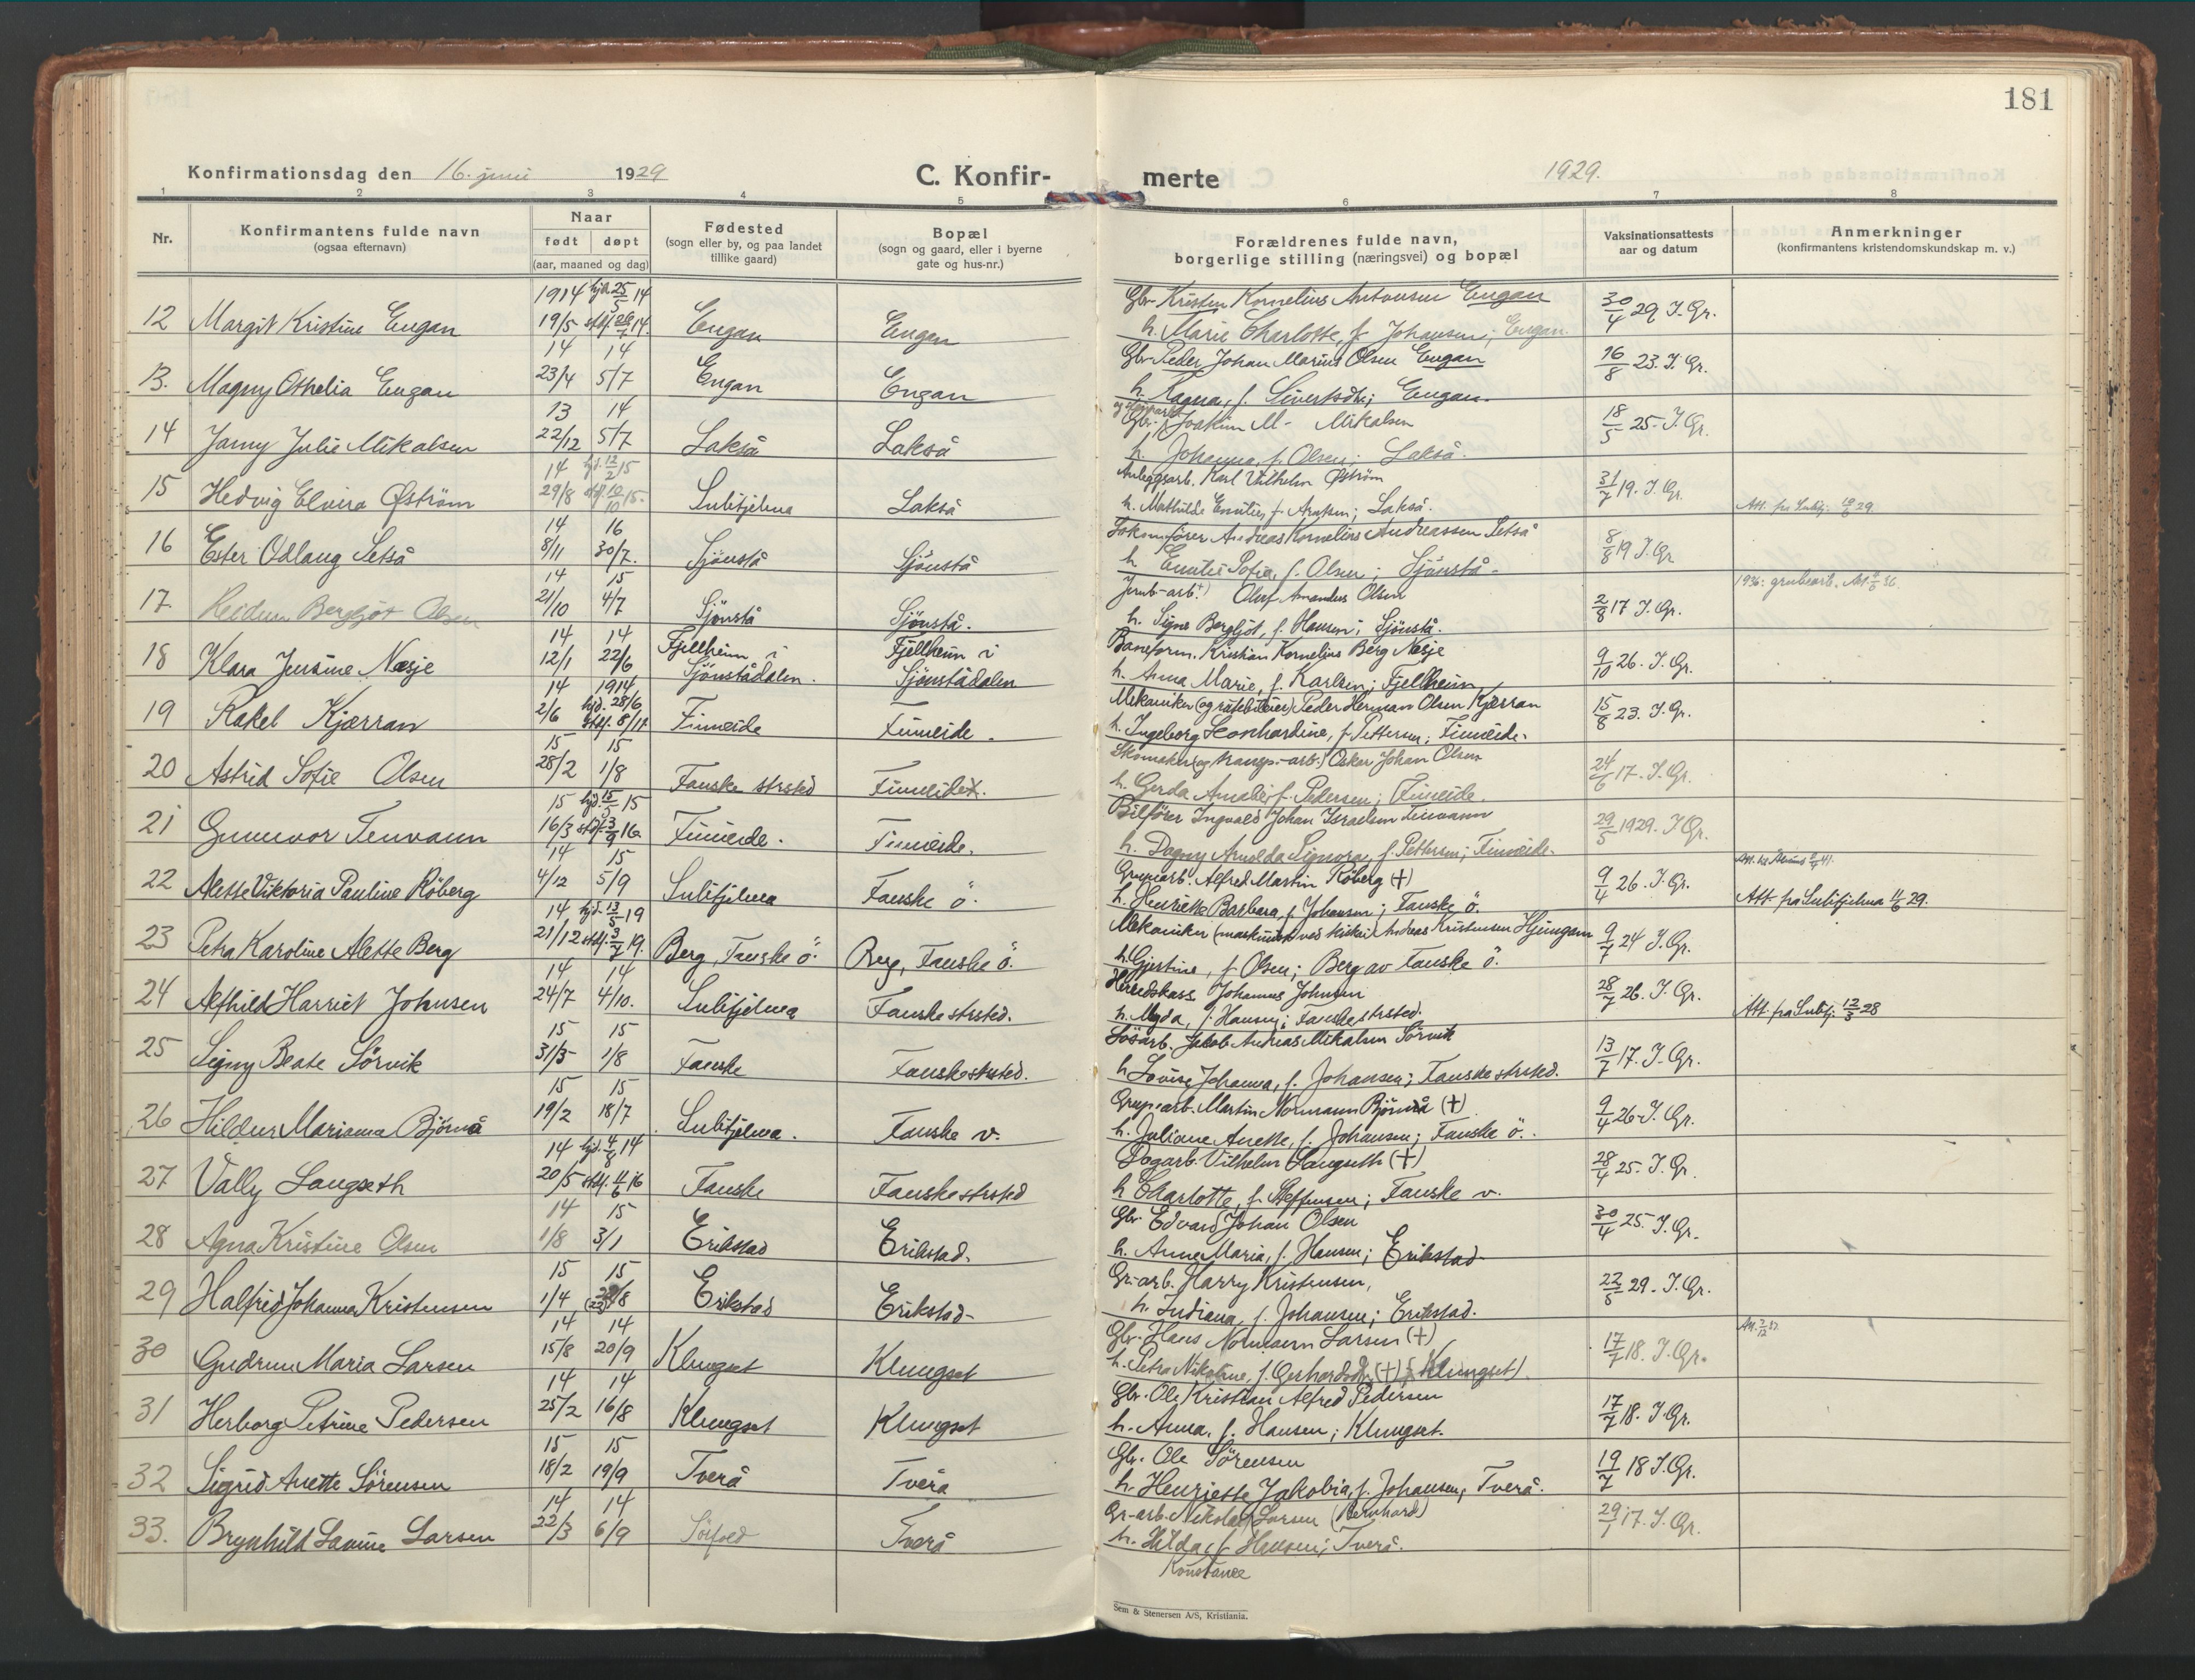 181
Konfirmationsdag den 16. juni 1929
C. Konfir-
merte
1929.
1 2 3 4 5 6 7 8
Nr.
Konfirmantens fulde navn
(ogsaa efternavn)
Naar
født døpt
(aar, maaned og dag)
Fødested
(sogn eller by, og paa landet
tillike gaard)
Bopæl
(sogn og gaard, eller i byerne
gate og hus-nr.)
Forældrenes fulde navn,
borgerlige stilling (næringsvei) og bopæl
Vaksinationsattests
aar og datum
Anmerkninger
(konfirmantens kristendomskundskap m. v.)
1914 hjd. 25/5 14 Gbr. Kristen Kornelius Antonsen Engan
12 Margit Kristine Engan 19/5 stdf. 26/7 14. Engan Engan h. Marie Charlotte, f. Johansen; Engan. 30/4 29 J. Gr.
14 14 Gbr. Peder Johan Marius Olsen Engan
13. Magny Othelia Engan 23/4 5/7 Engan Engan h. Ragna, f. Sivertsdtr; Engan. 16/8 23. J. Gr.
13 14 Gbr. Joakim M- Mikalsen
14 Janny Julie Mikalsen 22/12 5/7 Lakså Lakså h. Johanna, f. Olsen; Lakså. 18/5 25- J. Gr.
14 hjd. 12/2 15 Anleggsarb. Karl Vilhelm Øström
15 Hedvig Elvira Øström 29/8 stdf. 10/10 15- Sulitjelma Lakså h. Mathilde Emilie, f. Arntsen; Lakså. 31/7 19. J. Gr. Att. fra Sulitj. 29.
14 16 Lokomfører Andreas Kornelius Andreassen Setså
16 Ester Odlaug Setså 8/11 30/7. Sjönstå Sjönstå h. Emilie Sofie, f. Olsen; Sjönstå- 8/8 19 J. Gr
14 15 Jernb-arb. Oluf Amandus Olsen 1936: grubearb.
17. Reidun Bergljot Olsen 21/10 4/7 Sjönstå Sjönstå. h. Signe Bergljot, f. Hansen; Sjönstå. 2/8 17 J. Gr.
14 14 Fjellheim i Fjellheim i Baneform. Kristian Kornelius Berg Nesje
18 Klara Jensine Næsje 12/1 22/6 Sjönstådalen. Sjönstådalen h. Anna Marie, f. Karlsen; Fjellheim 9/10 26. J. Gr.
14 1914 hjd. 28/6 Mekaniker Peder Herman Olsen Kjærran
19 Rakel Kjærran 2/6 stdf. 8/11 Finneide Finneide. h. Ingeborg Leonhardine, f. Pettersen; Finneide. 15/8 23. J. Gr.
15 15 Skomaker (og transp.-arb.) Oskar Johan Olsen
20 Astrid Sofie Olsen 28/2 1/8 Fauske strsted Finneidet. h. Gerda Amalie, f. Pedersen; Finneide. 24/6 17. J. Gr.
15 hjd. 15/5 15 Bilfører Ingvald Johan Israelsen Tenvann
21 Gunnvor Tenvann 16/3 stdf. 3/9 16. Finneide. Finneide. h. Dagny Arnolda Signora, f. Pettersen; Finneide. 29/5 1929. J. Gr.
14 15 Grubearb. Alfred Martin Röberg (+)
22 Alette Viktoria Pauline Röberg 4/12 5/9 Sulitjelma Fauske ö. h. Henriette Barbara, f. Johansen; Fauske ö. 9/4 26. J. Gr. Att. fra Sulitjelma 29.
14 hjd. 13/5 19 Mekaniker Andreas Kristensen Hjemgam
23 Petra Karoline Alette Berg 21/12 stdf. 3/7 19. Berg, Fauske ö. Berg, Fauske ö. h. Gjertine, f. Olsen; Berg av Fauske ö. 9/7 24 J. Gr.
14 14 Herredskass. Johannes Johnsen
24 Alfhild Harriet Johnsen 24/7 4/10. Sulitjelma Fauske strsted. h. Magda, f. Hansen; Fauske strsted. 28/7 26. J. Gr. Att. fra Sulitj. 12/3 28
15 15 Lösarb. Jakob Andreas Mikalsen Sörvik
25 Signy Beate Sörvik 31/3 1/8 Fauske Fauske strsted. h. Lovise Johanna, f. Johansen; Fauske strsted. 13/7 17. J. Gr.
15 15 Grubearb. Martin Normann Björnå (+)
26 Hildur Marianna Björnå 19/2 18/7 Sulitjelma. Fauske v. h. Juliane Anette, f. Johansen; Fauske ö. 9/4 26- J. Gr.
14 hjd. 4/8 14 Dagarb. Vilhelm Langseth (+)
27 Vally Langseth 20/5 stdf. 4/6 16 Fauske Fauske strsted h. Charlotte, f. Steffensen; Fauske v. 28/4 25- J. Gr.
14 15 Gbr. Edvard Johan Olsen
28 Agna Kristine Olsen 1/8 3/1 Erikstad Erikstad. h. Anna Maria, f. Hansen; Erikstad. 30/4 25. J. Gr.
15 15 Gr.-arb. Harry Kristensen,
29 Halfrid Johanna Kristensen 1/4 (22) 22/8 Erikstad Erikstad- h. Indiana, f. Johansen; Erikstad. 22/5 29. J. Gr.
14 14 Gbr. Hans Normann Larsen (+)
30 Gudrun Maria Larsen 15/8 20/9 Klungset Klungset h. Petra Nikoline, f. Gerhardsdtr (+) (Klungset). 17/7 18. J. Gr.
14 14 Gbr. Ole Kristian Alfred Pedersen
31 Herborg Petrine Pedersen 25/2 16/8 Klungset Klungset h. Anna, f. Hansen; Klungset. 17/7 18. J. Gr.
15 15 Gbr. Ole Sörensen
32 Sigrid Anette Sörensen 18/2 19/9 Tverå Tverå h. Henriette Jakobia, f. Johansen, Tverå. 19/7 18 J. Gr.
14 14 Gr-arb. Nikolai Larsen (Bernhard)
33. Brynhild Lavine Larsen 22/3 6/9 Sörfold Tverå h. Hilda, f. Hansen; Tverå. 29/1 17. J. Gr.
Konstance
Sem & Stenersen A/S, Kristiania.